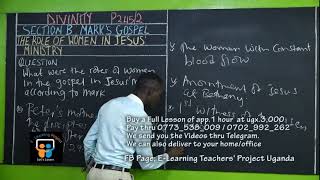 DIVINITY P245/2
SECTION B MARK'S GOSPEL
THE ROLE OF WOMEN IN JESUS'
MINISTRY
QUESTION
What were the roles of women
in the gospel in Jesus'
according to mark
Peter's mother
The Woman with Constant
blood flow
Anointment of Jesus
at Bethany
1st Witness of
Buy a Full Lesson of app.1 hour at ugx.3,000;
Pay thru 0773_538_009 / 0702_992_262
We send you the Videos thru Telegram.
We can also deliver to your home/office
FB Page: E-Learning Teachers' Project Uganda